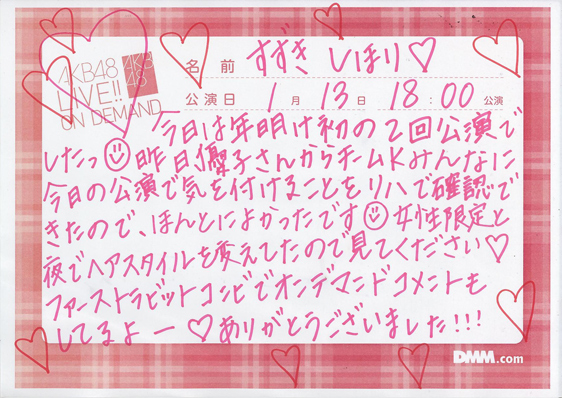 AKB48
LIVE!!
ON DEMAND
AKB
48
名前 すずき しほり♡
公演日 1月13日 18:00 公演
今日は年明け初の2回公演で
したっ☺昨日優子さんからチームKみんなに
今日の公演で気を付けることをリハで確認で
きたので、ほんとによかったです☺女性限定と
夜でヘアスタイルを変えてたので見てください♡
ファーストラビットコンビでオンデマンドコメントも
してるよー♡ありがとうございました!!!
DMM.com